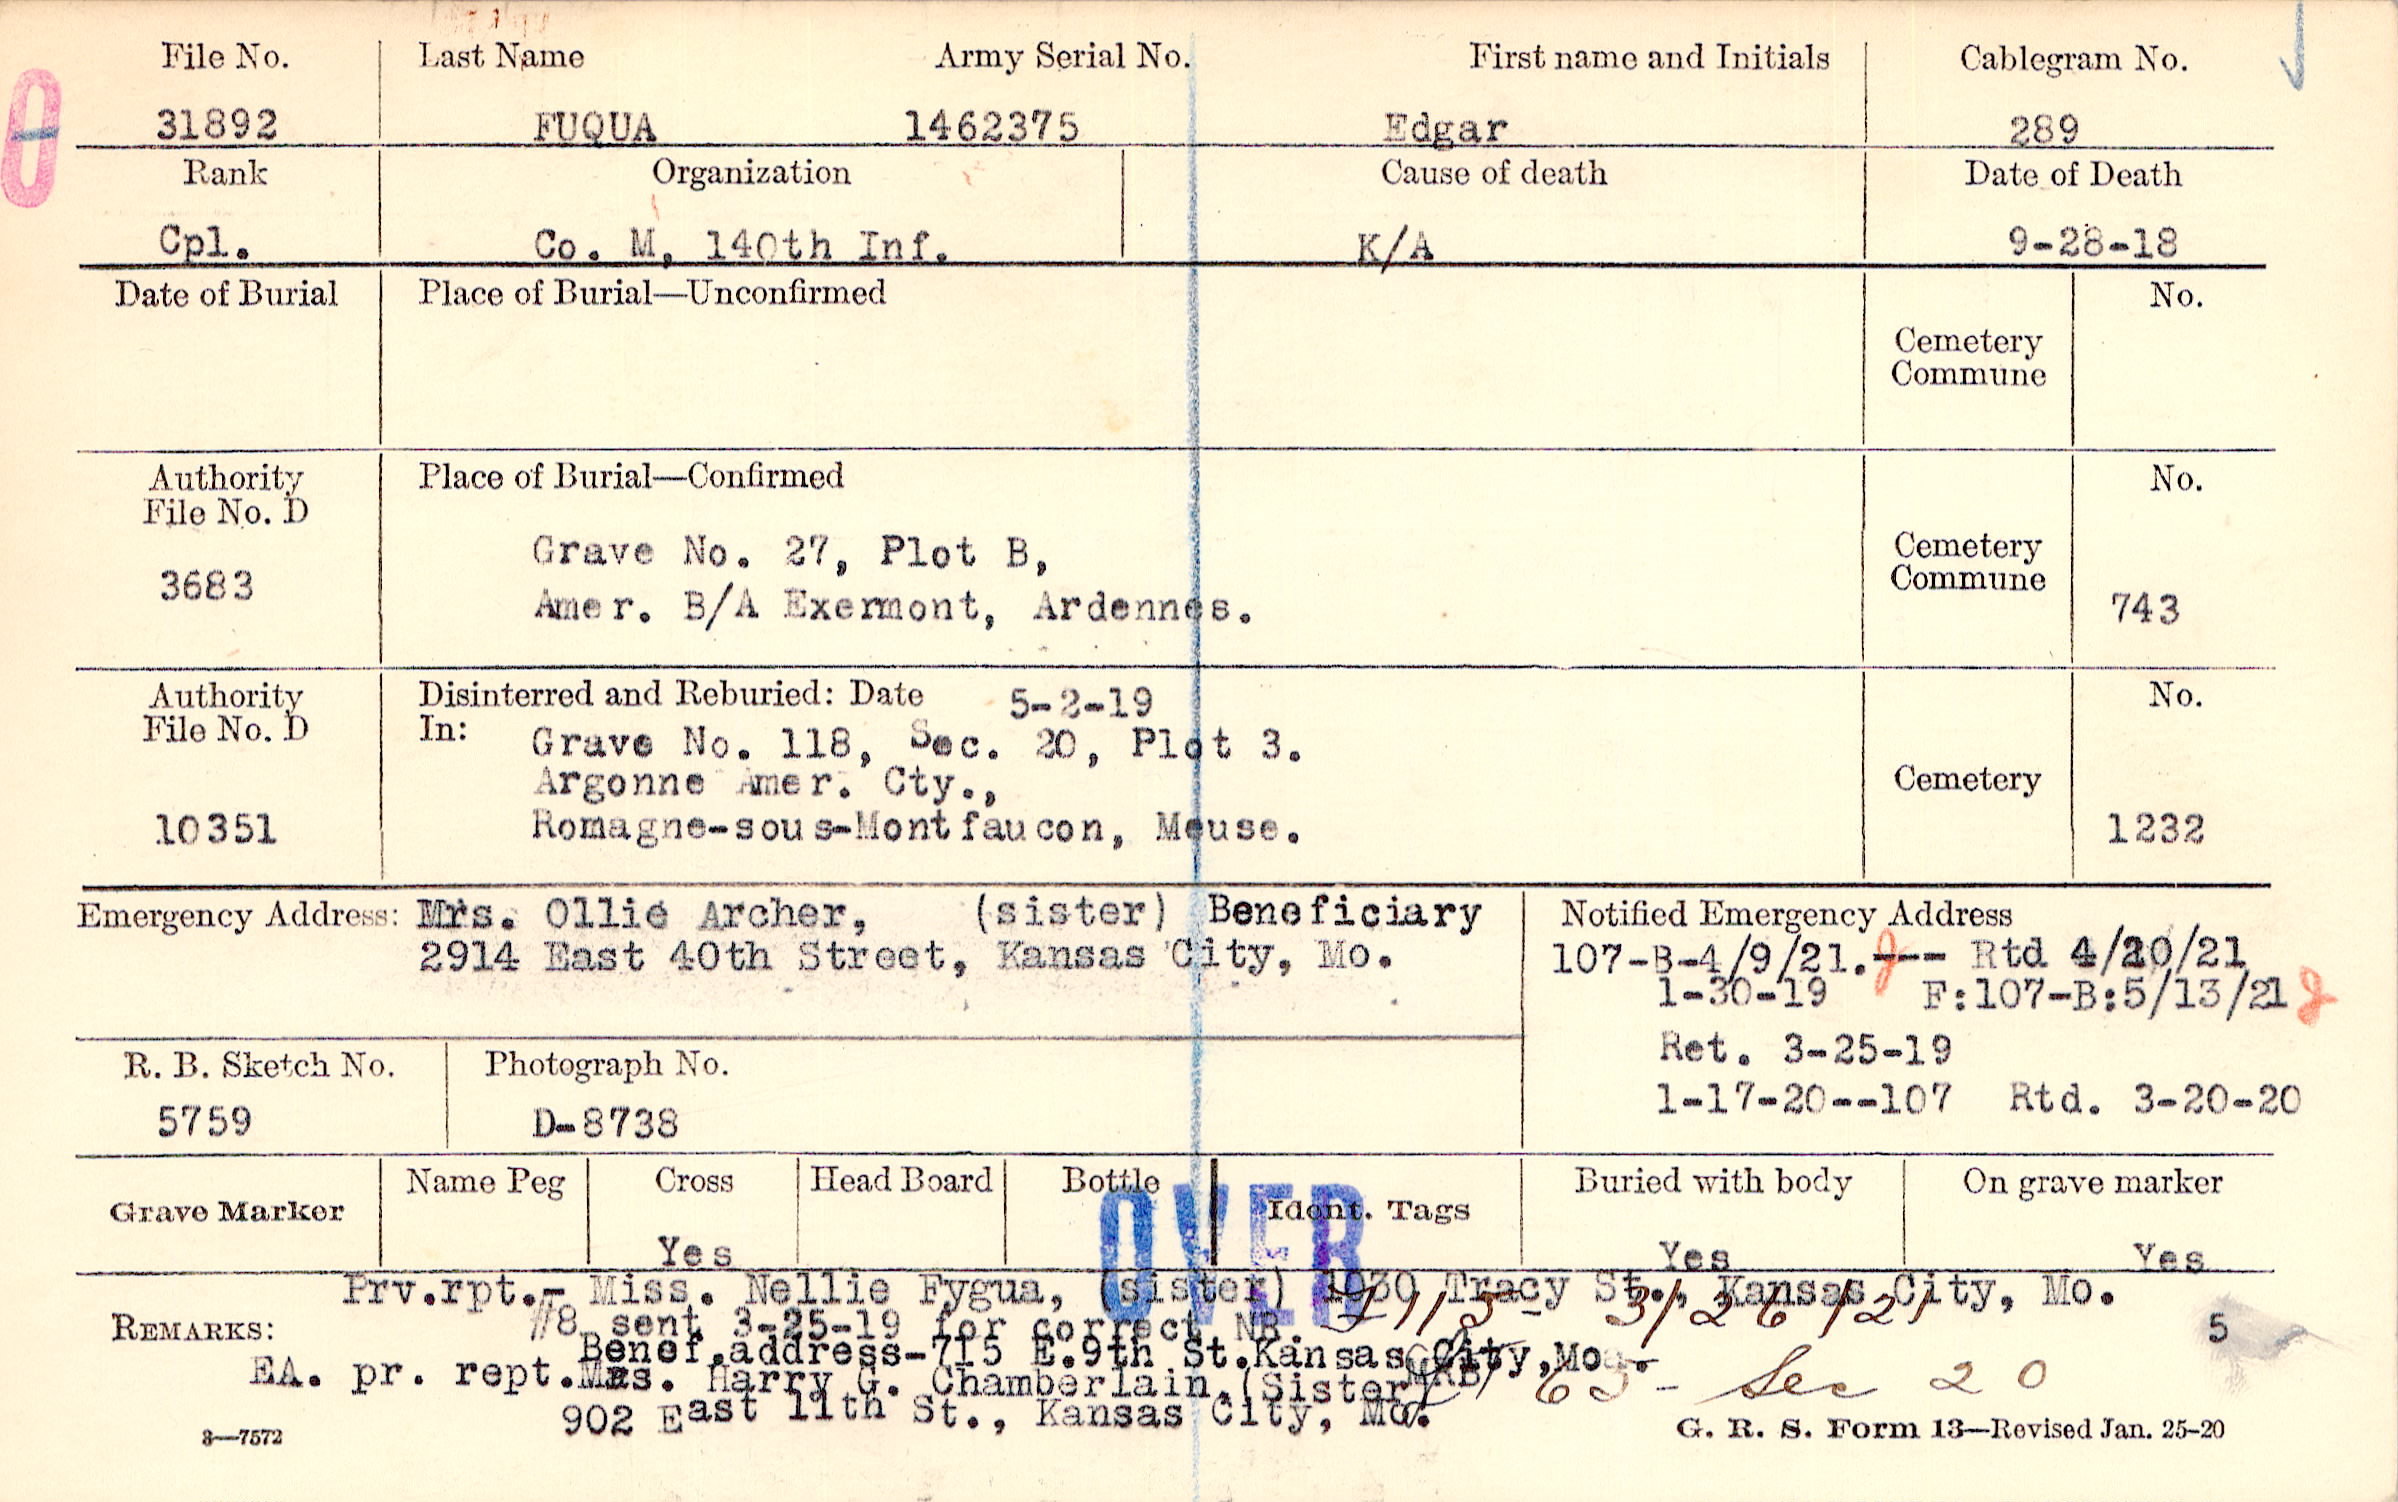 File No. Last Name Army Serial No. First name and Initials Cablegram No.
31892 FUQUA 1462375 Edgar 289
Rank Organization Cause of death Date of Death
Cpl. Co. M, 140th Inf. K/A 9-28-18
Date of Burial Place of Burial—Unconfirmed No.
Cemetery
Commune
Authority Place of Burial—Confirmed No.
File No. D
Grave No. 27, Plot B, Cemetery
3683 Commune
Amer. B/A Exermont, Ardennes. 743
Authority Disinterred and Reburied: Date 5-2-19 No.
File No. D In: Grave No. 118, Sec. 20, Plot 3.
Argonne Amer. Cty., Cemetery
10351 Romagne-sous-Montfaucon, Meuse. 1232
Emergency Address: Mrs. Ollie Archer, (sister) Beneficiary Notified Emergency Address
2914 East 40th Street, Kansas City, Mo. 107-B-4/9/21.--- Rtd 4/20/21
1-30-19 F:107-B:5/13/21
Ret. 3-25-19
R. B. Sketch No. Photograph No.
5759 D-8738 1-17-20--107 Rtd. 3-20-20
Grave Marker Name Peg Cross Head Board Bottle Ident. Tags Buried with body On grave marker
Yes Yes Yes
OVER
Prv.rpt.- Miss. Nellie Fygua, (sister) 1030 Tracy St., Kansas City, Mo.
REMARKS: #8 sent 3-25-19 for correct NR 3/26/21 5
Benef.address-715 E.9th St.Kansas City,Mo.
EA. pr. rept.Mrs. Harry G. Chamberlain,(Sister) MRB 63 - Sec 20
902 East 11th St., Kansas City, Mo.
3—7572 G. R. S. Form 13—Revised Jan. 25-20